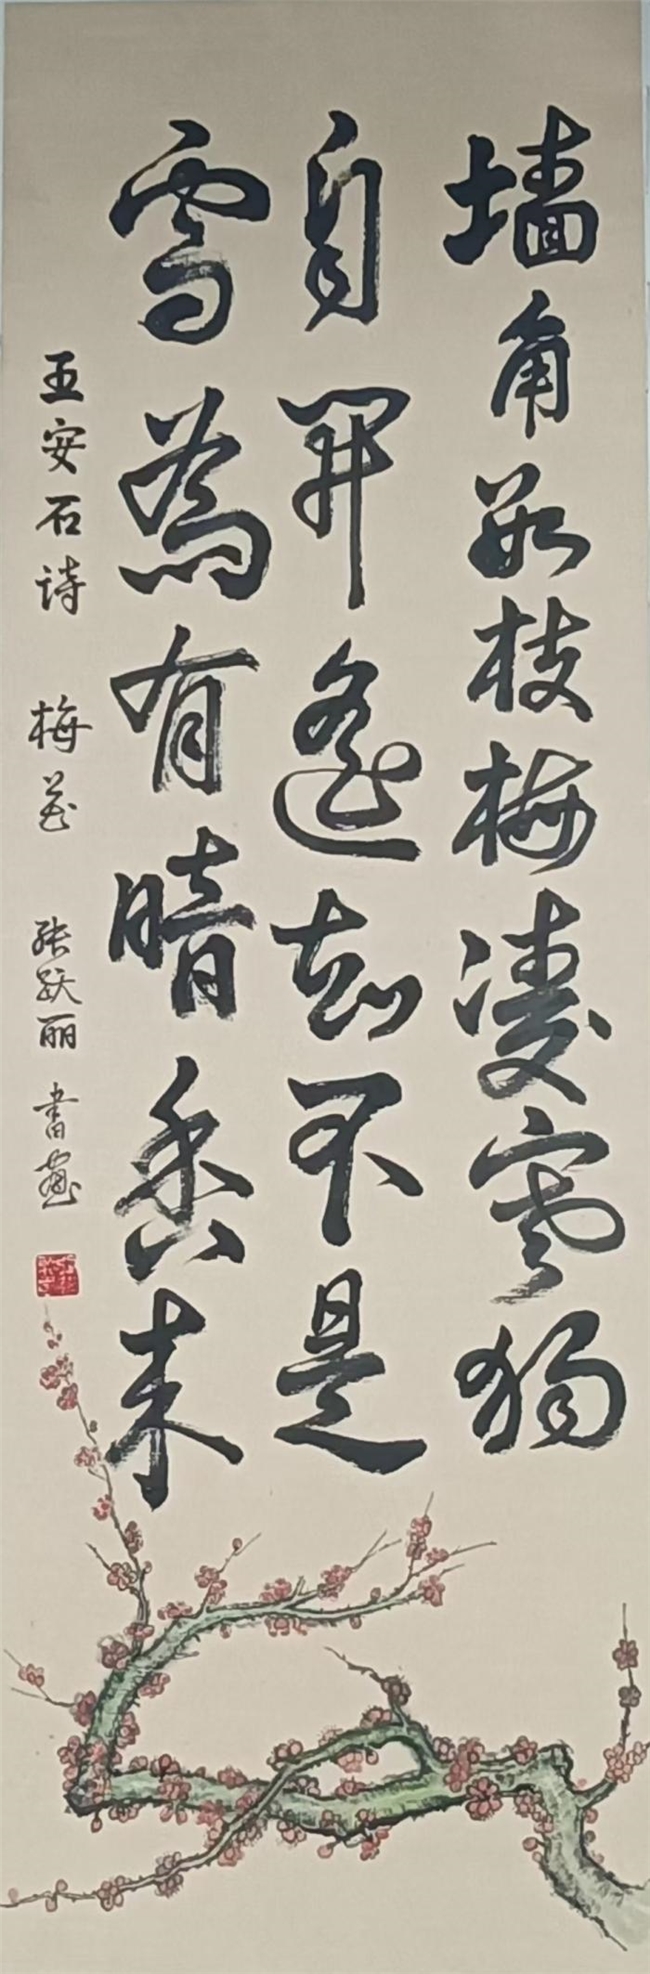 墙角数枝梅凌寒独
自開遥知不是
雪為有暗香来
王安石诗 梅花 张跃丽 書画